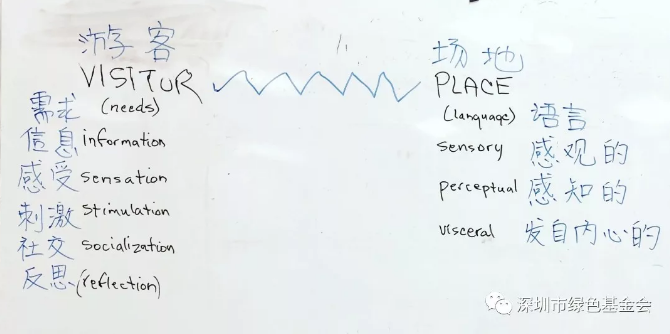 游客 场地
VISITUR PLACE
需求 (needs) (language) 语言
信息 information sensory 感观的
感受 sensation perceptual 感知的
刺激 stimulation visceral 发自内心的
社交 socialization
反思 (reflection)
深圳市绿色基金会